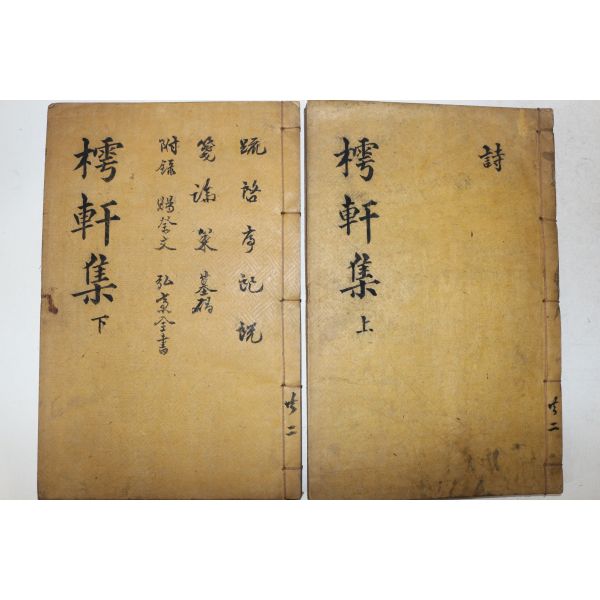 共二
詩
樗軒集 上
共二
疏 啓 序 記 説
箋 論 策 墓碣
附錄 賜祭文 弘齋全書
樗軒集 下